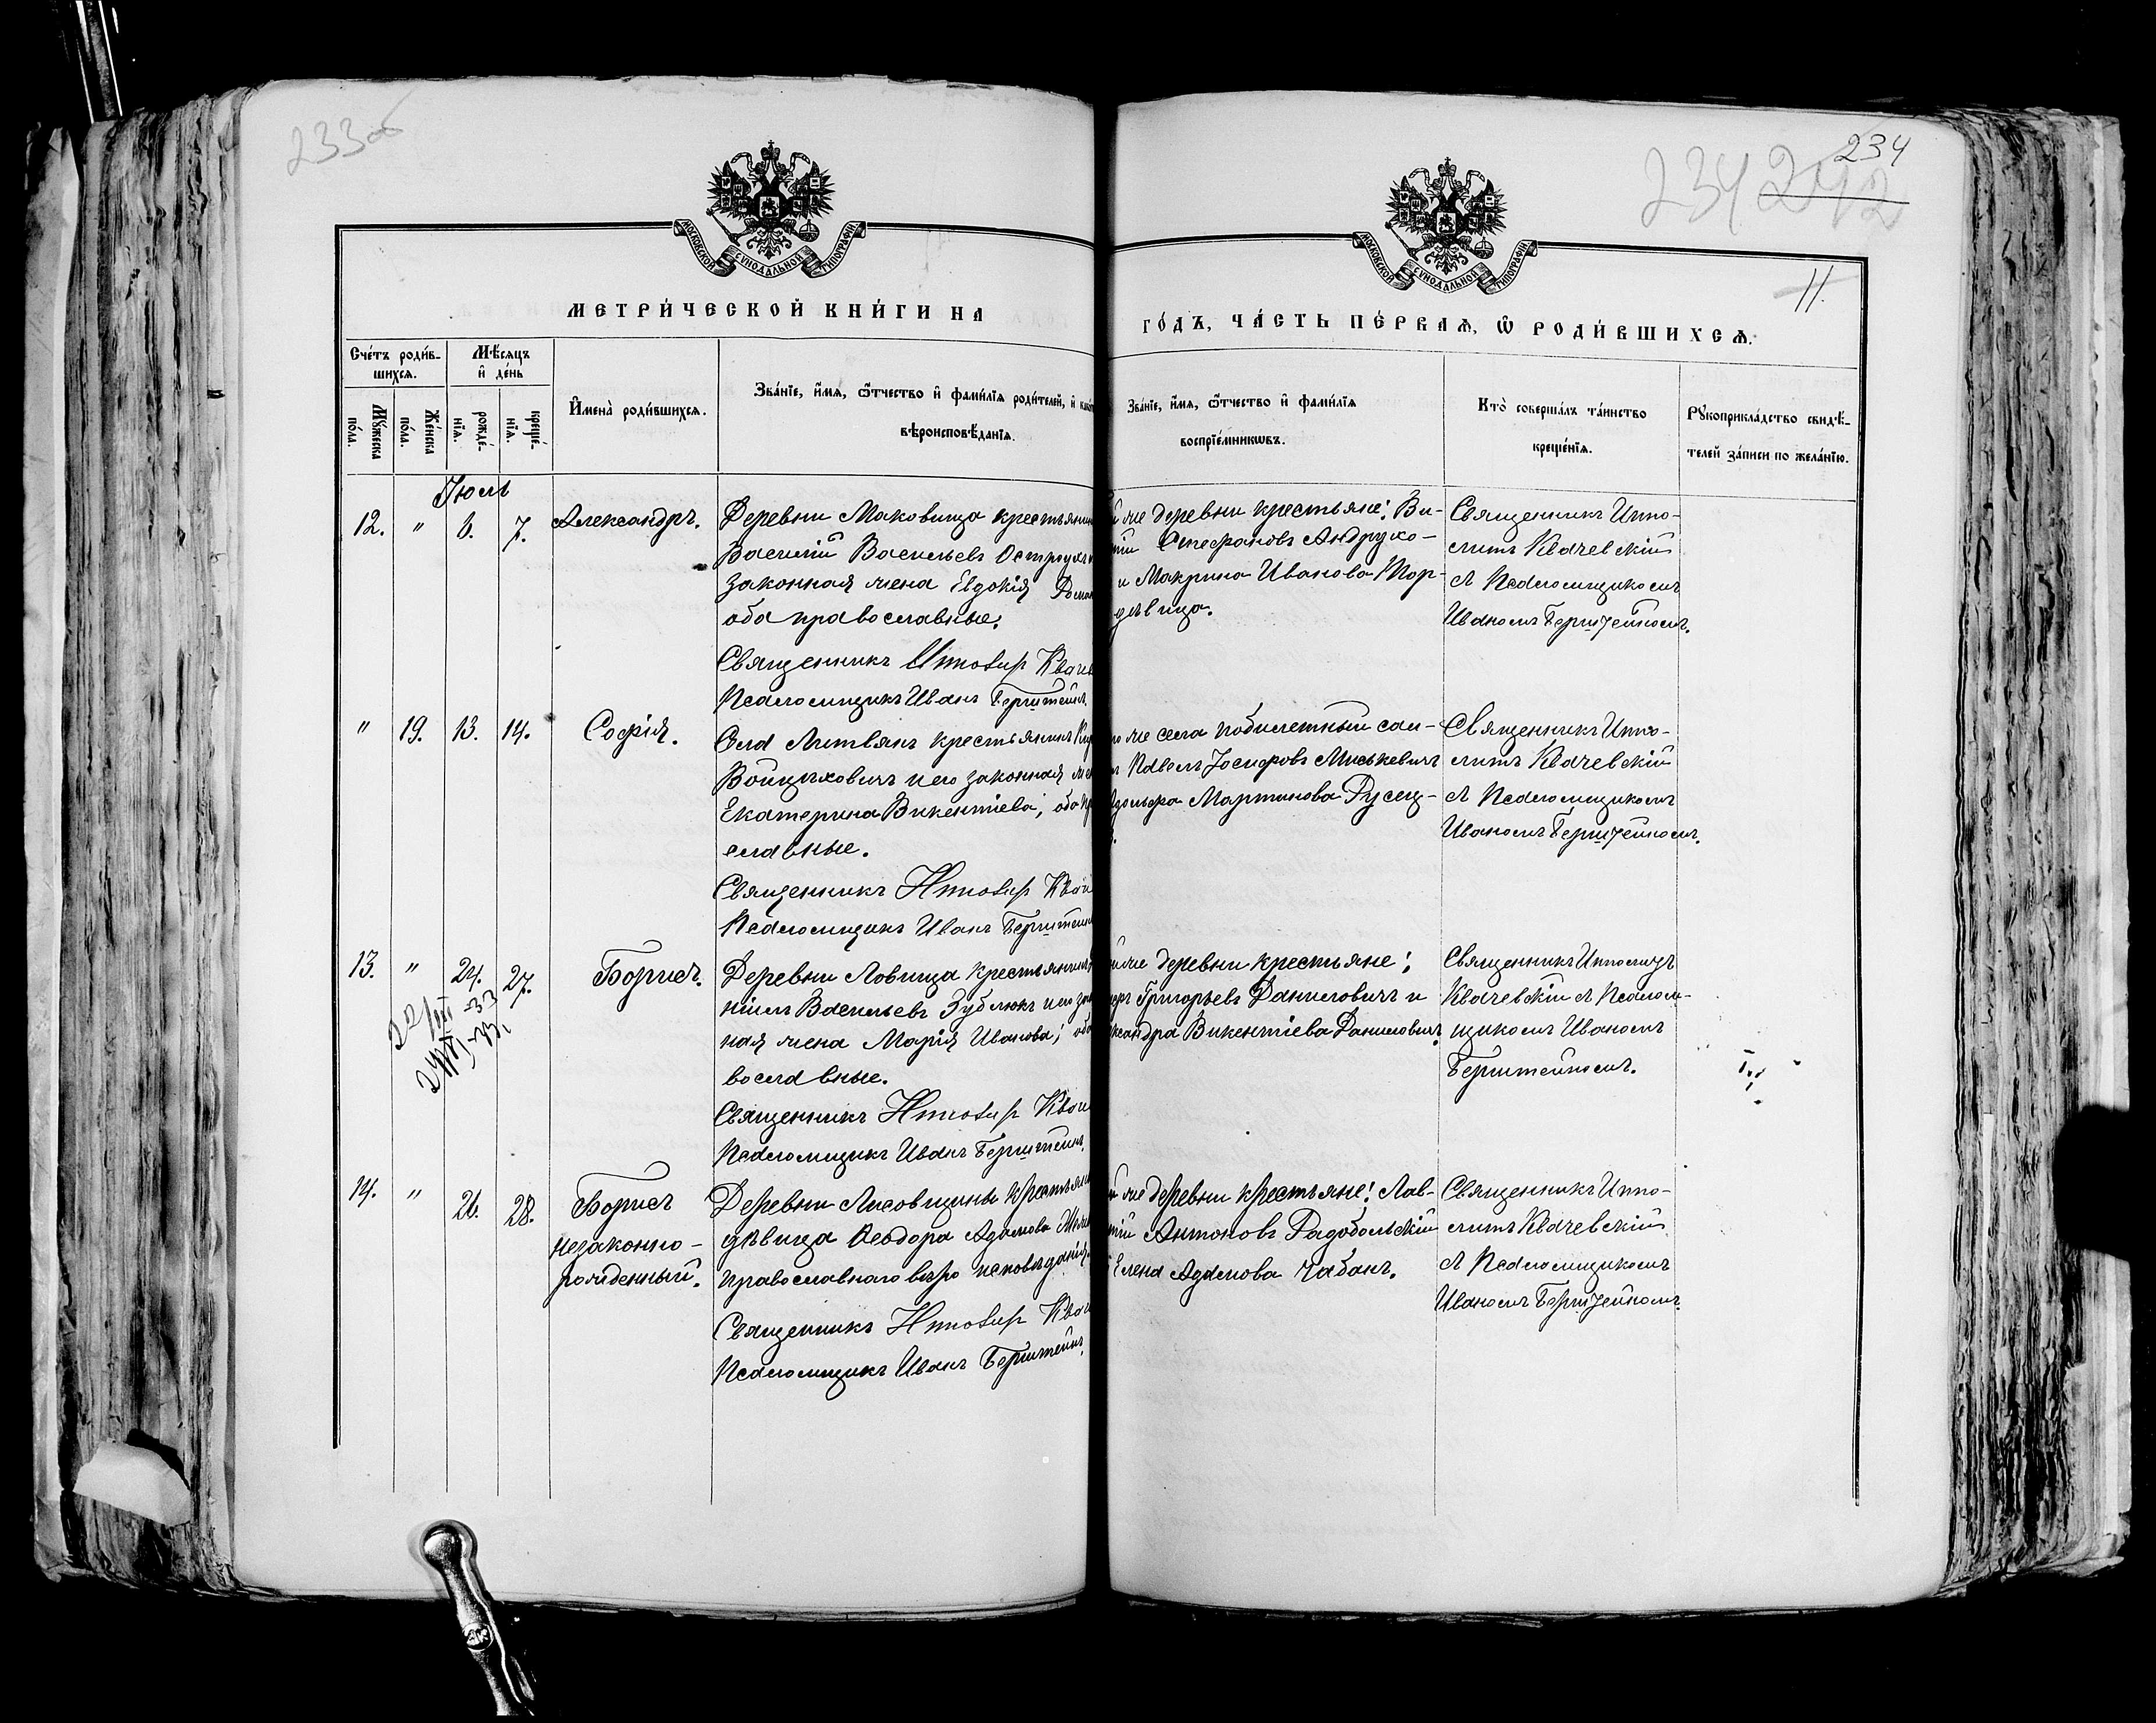 233об
234
234 242
11.
МОСКОВСКОЙ СѴНОДАЛЬНОЙ ТИПОГРАФІИ
МОСКОВСКОЙ СѴНОДАЛЬНОЙ ТИПОГРАФІИ
МЕТРИ́ЧЕСКОЙ КНИ́ГИ НА
ГО́ДЪ, ЧА́СТЬ ПЕ́РВАѦ, Ѿ РОДИ́ВШИХСѦ.
Сче́тъ роди́в-
шихсѧ.
Мѣ́сѧцъ
и҆ де́нь
Мꙋ́жеска
по́ла.
Же́нска
по́ла.
рожде́-
нїѧ.
креще́-
нїѧ.
И҆мена̀ роди́вшихсѧ.
Зва́нїе, и҆́мѧ, ѻ҆́тчество и҆ фами́лїѧ роди́телей, и҆
вѣроисповѣ́данїѧ.
Зва́нїе, и҆́мѧ, ѻ҆́тчество и҆ фами́лїѧ
воспрїе́мникѡвъ.
Кто̀ соверша́лъ та́инство
креще́нїѧ.
Рꙋкоприкла́дство свидѣ́-
телей за́писи по жела́нїю.
Іюль
12. " 6. 7. Александръ.
Деревни Маковища крестьянин
Василій Васильевъ
законная жена Евдокія
оба православные.
Священникъ Ипполит Кваче
Псаломщикъ Иванъ Берштейнъ.
же деревни крестьяне: Ви-
Стефановъ Андрухо-
и Макрина Иванова Тор-
дѣвица.
Священникъ Иппо-
литъ Квачевскій
съ Псаломщикомъ
Иваномъ Берштейномъ.
" 19. 13. 14. Софія.
Села Литвянъ крестьянинъ
Войцѣховичъ и его законная же
Екатерина Викентіева, оба пр
славные.
Священникъ Ипполит Квач
Псаломщикъ Иванъ Берштейн
же села побилетный сол-
Павелъ Іосифовъ Миськевичъ
Мартинова Русец-
Священникъ Иппо-
литъ Квачевскій
съ Псаломщикомъ
Иваномъ Берштейномъ.
13. " 24. 27. Борисъ.
22/III-33
Деревни Ловища крестьянинъ
Васильевъ Зублюкъ и его зак
ная жена Марія Иванова, оба
вославные.
Священникъ Ипполит Квач
Псаломщикъ Иванъ Берштейнъ.
же деревни крестьяне:
Григорьевъ Даниловичъ и
Викентіева Даниловичъ.
Священникъ Ипполитъ
Квачевскій съ Псалом-
щикомъ Иваномъ
Берштейномъ.
14. " 26. 28. Борисъ
незаконно-
рожденный.
Деревни Лисовщины крестьян
дѣвица Ѳеодора Адамова
православнаго вѣроисповѣданія.
Священникъ Ипполит Квач
Псаломщикъ Иванъ Берштейнъ.
же деревни крестьяне: Лав-
Антоновъ Радобольскій
Елена Адамова Чабанъ.
Священникъ Иппо-
литъ Квачевскій
съ Псаломщикомъ
Иваномъ Берштейномъ.